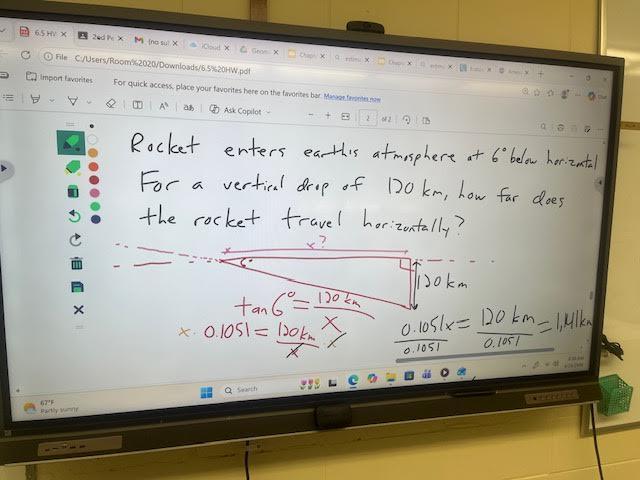 6.5 HW
(no su
iCloud
Geom
Chapt
estima
Chap
File C:/Users/Room%2020/Downloads/6.5%20HW.pdf
Import favorites For quick access, place your favorites here on the favorites bar. Manage favorites now
Ask Copilot
2 of 2
Rocket enters earth's atmosphere at 6° below horizontal
For a vertical drop of 120 km, how far does
the rocket travel horizontally?
x?
6°
120 km
tan 6° = 120 km
x
x · 0.1051 = 120 km · x
x
0.1051x = 120 km = 1,141 km
0.1051 0.1051
67°F
Partly sunny
Search